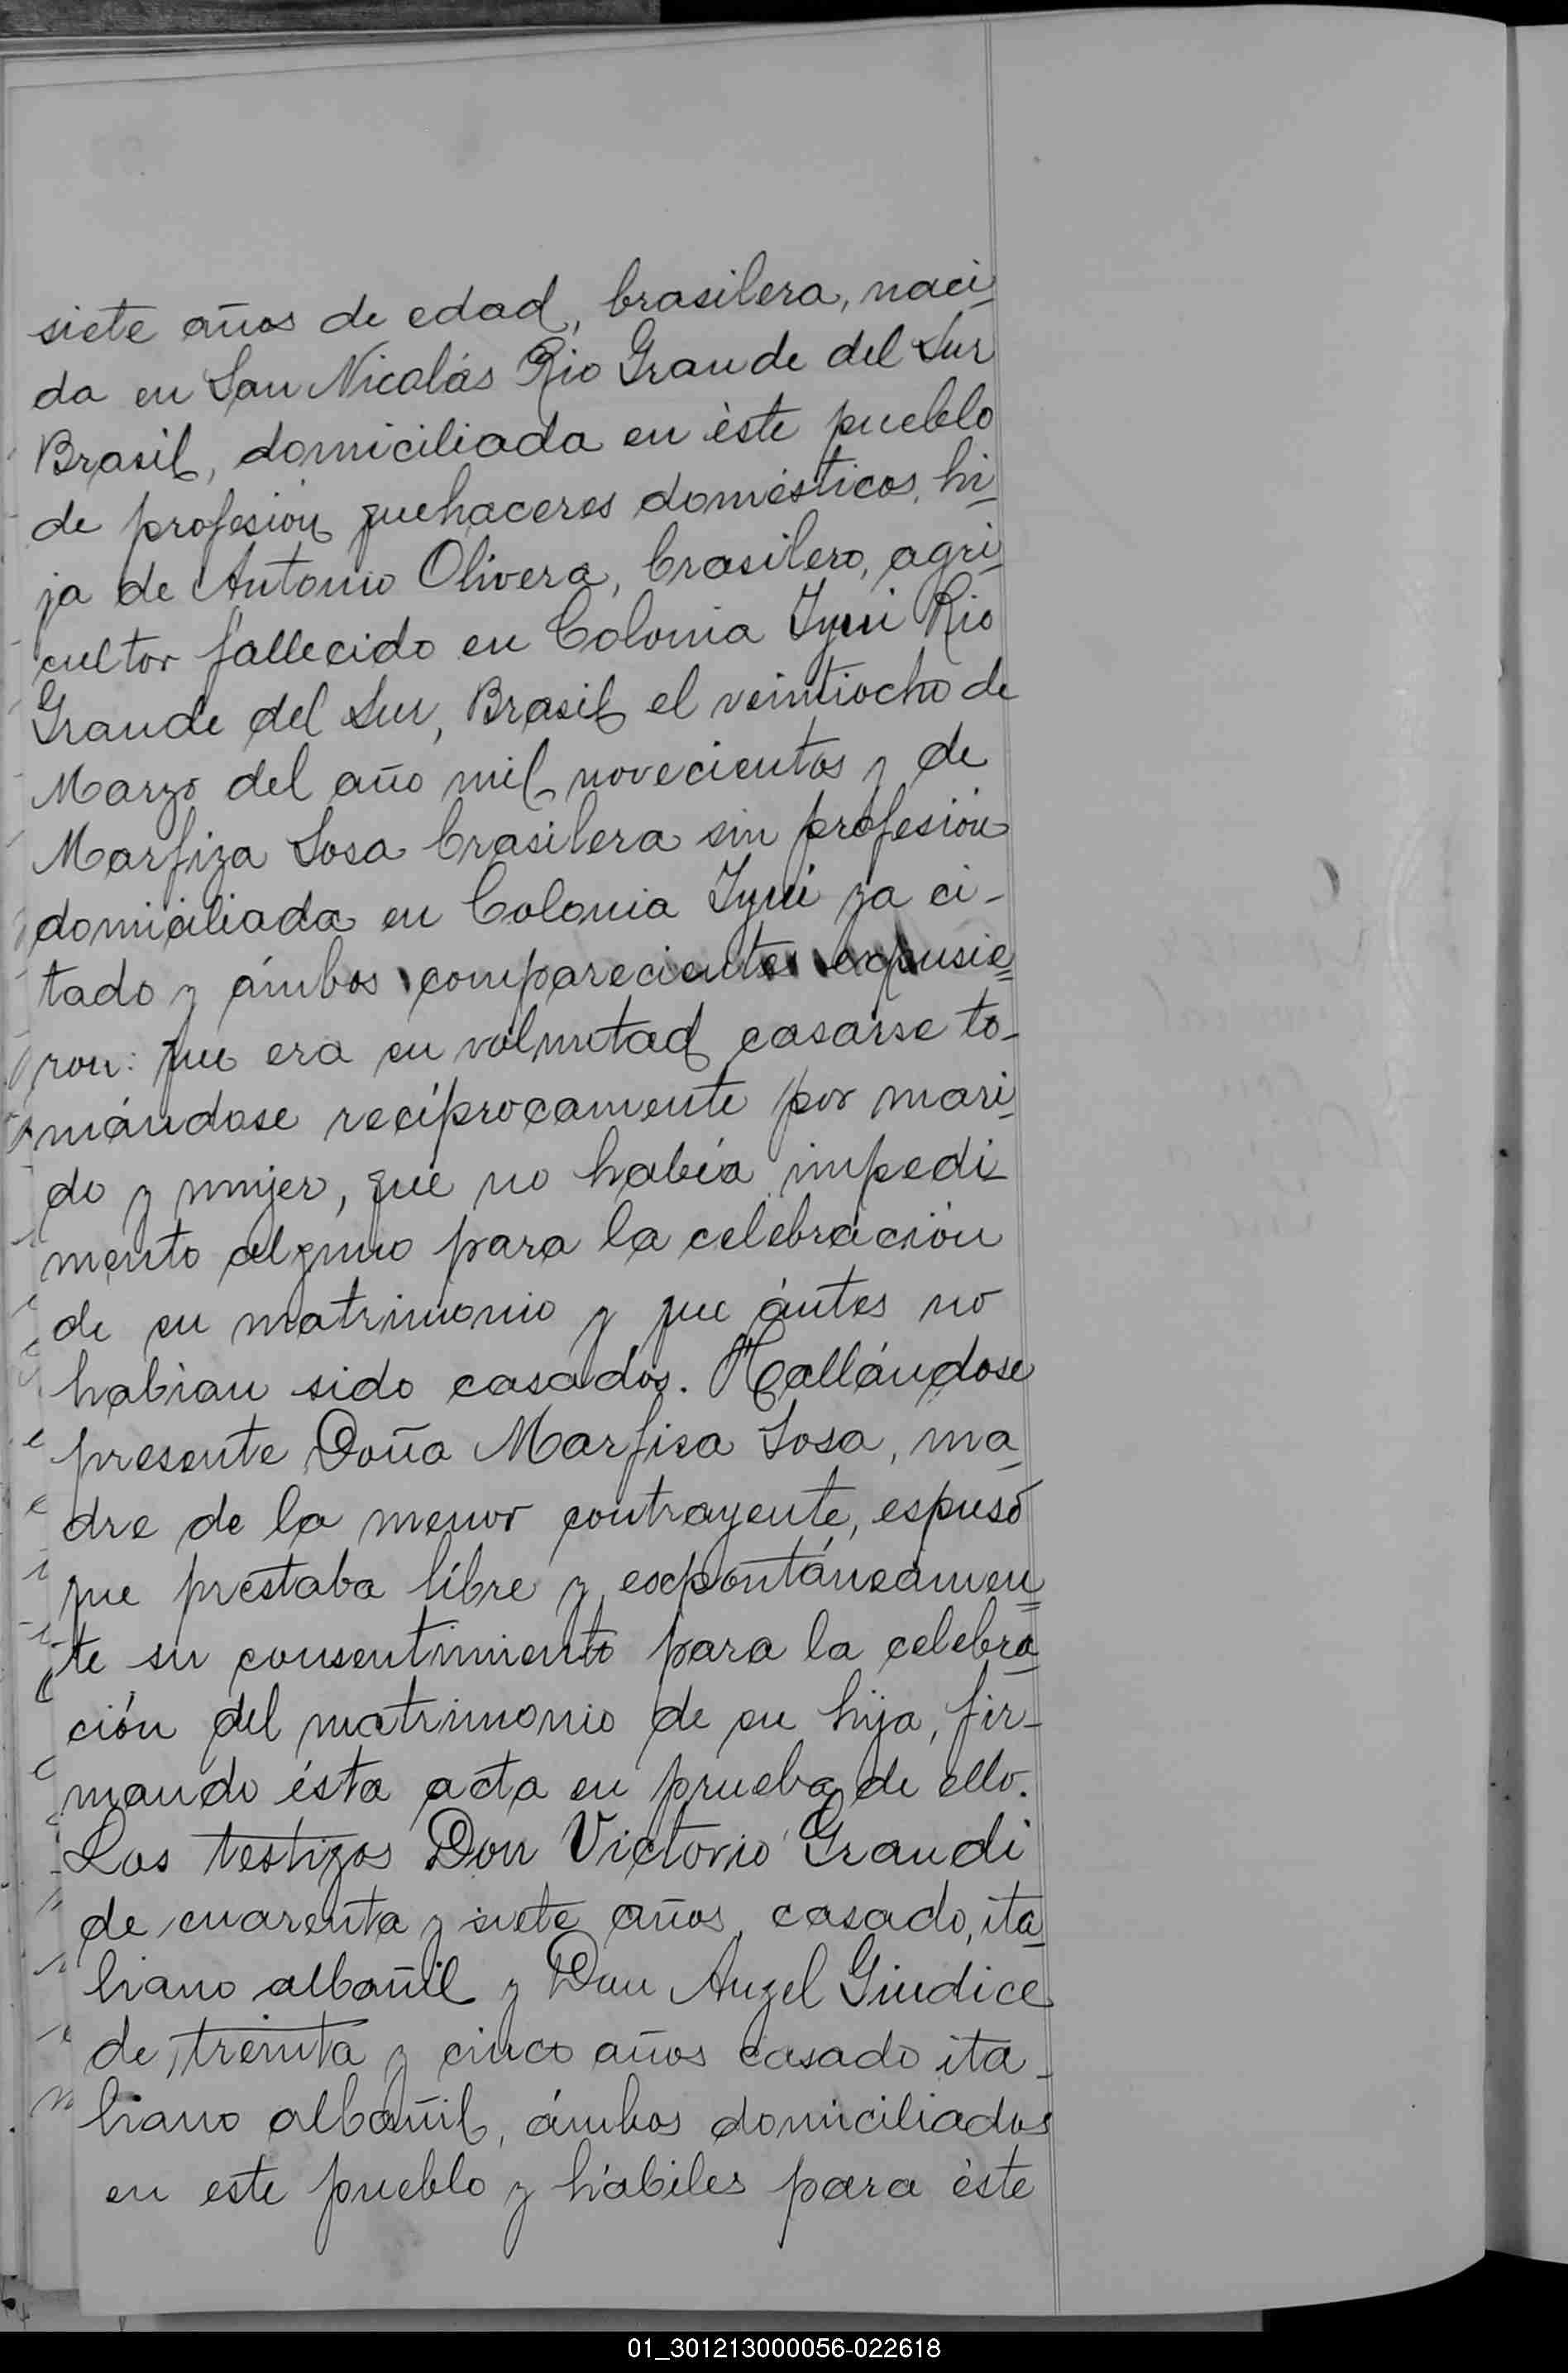 siete años de edad, brasilera, naci-
da en San Nicolás Rio Grande del Sur
Brasil, domiciliada en èste pueblo
de profesión quehaceres domésticos, hi-
ja de Antonio Olivera, brasilero, agri-
cultor fallecido en Colonia Iyuí Rio
Grande del Sur, Brasil el veintiocho de
Marzo del año mil novecientos y de
Marfiza Sosa brasilera sin profesión
domiciliada en Colonia Iyuí ya ci-
tado y ámbos comparecientes expusie=
ron: que era su volumtad casarse to-
mándose recíprocamente por mari-
do y mujer, que no había impedi-
mento alguno para la celebración
de su matrimonio y que ántes no
habían sido casados. Hallándose
presente Doña Marfisa Sosa, ma-
dre de la menor contrayente, espusó
que prestaba líbre y expontáneamen=
te su consentimiento para la celebra-
ción del matrimonio de su hija, fir-
mando ésta acta en prueba de ello.
Los testigos Don Victorio Grandi
de cuarenta y siete años, casado, ita-
liano albañil y Don Angel Giudice
de treinta y cinco años casado ita-
liano albañil, ámbos domiciliados
en este pueblo y hábiles para èste
01_301213000056-022618